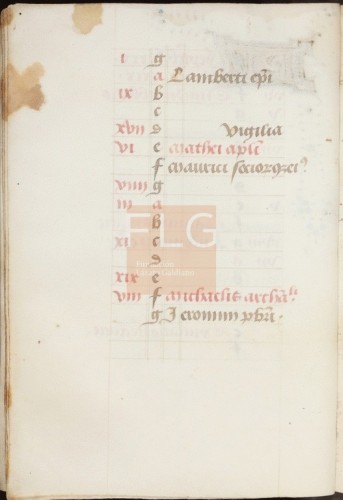 i g
a Lamberti epi
ix b
c
xvii d vigilia
vi e Mathei apli
f Maurici socior eius
xiiii g
iii a
b
xi c
d
xix e
viii f Michaelis archa
g Jeronimi pbri
FLG